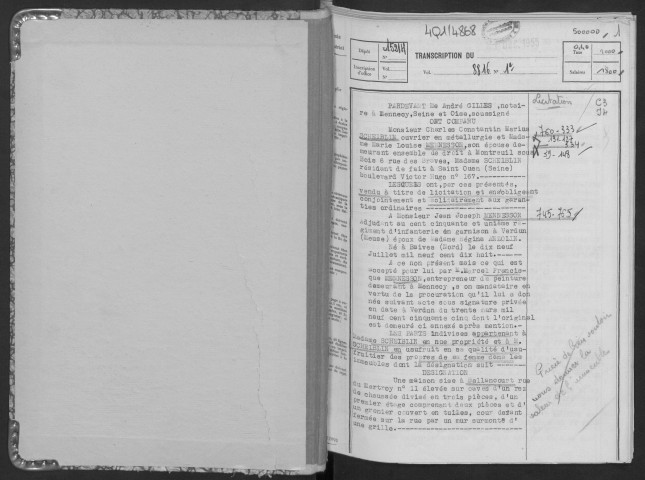 4Q1/4868
500000
1
Dépôt
N°
152/11
TRANSCRIPTION DU
Vol. 8816 n° 1
Taxe
Salaires
PARDEVANT Me André GILLES, notai-
re à Mennecy, Seine et Oise, soussigné
ONT COMPARU
Monsieur Charles Constantin Marius
SCHEIBLIN ouvrier en métallurgie et Mada-
me Marie Louise MENNESSON, son épouse de-
meurant ensemble de droit à Montreuil sous
Bois 8 rue des Graves, Madame SCHEIBLIN
résident de fait à Saint Ouen (Seine)
boulevard Victor Hugo n° 167.-----------
LESQUELS ont, par ces présentes,
vendu à titre de licitation et en obligeant
conjointement et solidairement aux garan-
ties ordinaires --------------------
A Monsieur Jean Joseph MENNESSON
adjudant au cent cinquante et unième ré-
giment d'infanterie en garnison à Verdun
(Meuse) époux de Madame Régina
Né à Baives (Nord) le dix neuf
Juillet mil neuf cent dix huit.------
A ce non présent mais ce qui est
accepté pour lui par M. Marcel Francis-
que MENNESSON, entrepreneur de peinture
demeurant à Mennecy, son mandataire en
vertu de la procuration qu'il lui a don
née suivant acte sous signature privée
en date à Verdun du trente mars mil
neuf cent cinquante cinq dont l'original
est demeuré ci annexé après mention.---
LES PARTS indivises appartenant à
Madame SCHEIBLIN en nue propriété et à M.
SCHEIBLIN en usufruit en sa qualité d'usu-
fruitier des propres de sa femme dans les
immeubles dont la désignation suit ------
DESIGNATION
Une maison sise à Ballancourt rue
du Martroy n° 11 élevée sur caves d'un rez
de chaussée divisé en trois pièces, d'un
premier étage comprenant deux pièces et d'
un grenier couvert en tuiles, cour devant
fermée sur la rue par un mur surmonté d'
une grille.----------------------
Licitation
C3
760-333
59-148
745-765